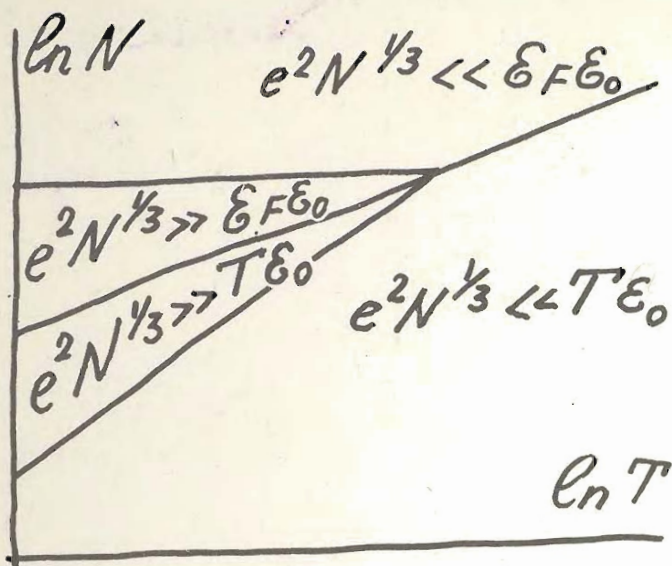 ln N
e² N^1/3 << ℰ_F ℰ₀
e² N^1/3 >> ℰ_F ℰ₀
e² N^1/3 >> T ℰ₀
e² N^1/3 << T ℰ₀
ln T